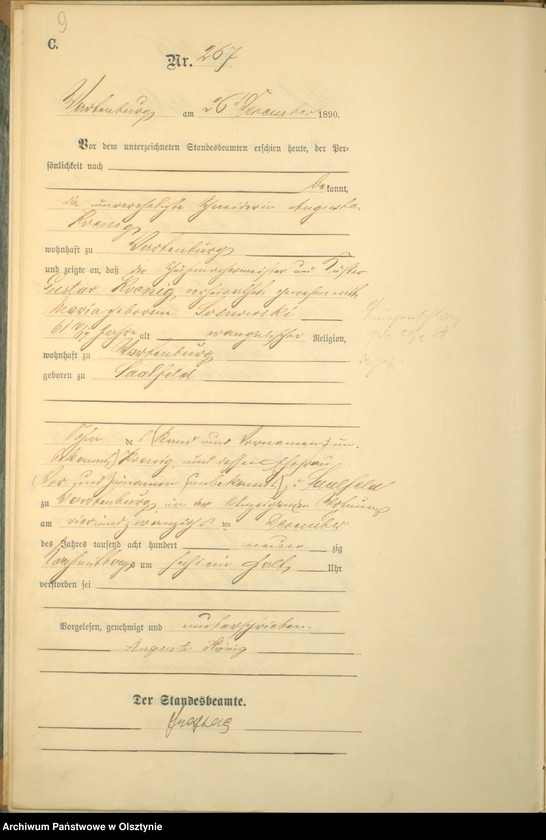 9
C.
Nr. 267
Wartenburg am 26 Dezember 1890.
Vor dem unterzeichneten Standesbeamten erschien heute, der Per-
sönlichkeit nach
be kannt,
die unverehelichte Schneiderin Auguste
Koenig
wohnhaft zu Wartenburg
und zeigte an, daß der Schuhmachermeister und Küster
Gustav Koenig, verheirathet gewesen mit
Maria geborene
61 Jahre alt evangelischer Religion,
wohnhaft zu Wartenburg
geboren zu Saalfeld
Sohn des (Stand und Vornamen un-
bekannt) Koenig, und dessen Ehefrau
(Vor und Zunamen unbekannt), Saalfeld
zu Wartenburg in der Wohnung
am vierundzwanzigsten Dezember
des Jahres tausend acht hundert neun zig
Nachmittags um sechs ein halb Uhr
verstorben sei
Vorgelesen, genehmigt und unterschrieben.
Auguste König
Der Standesbeamte.
Archiwum Państwowe w Olsztynie